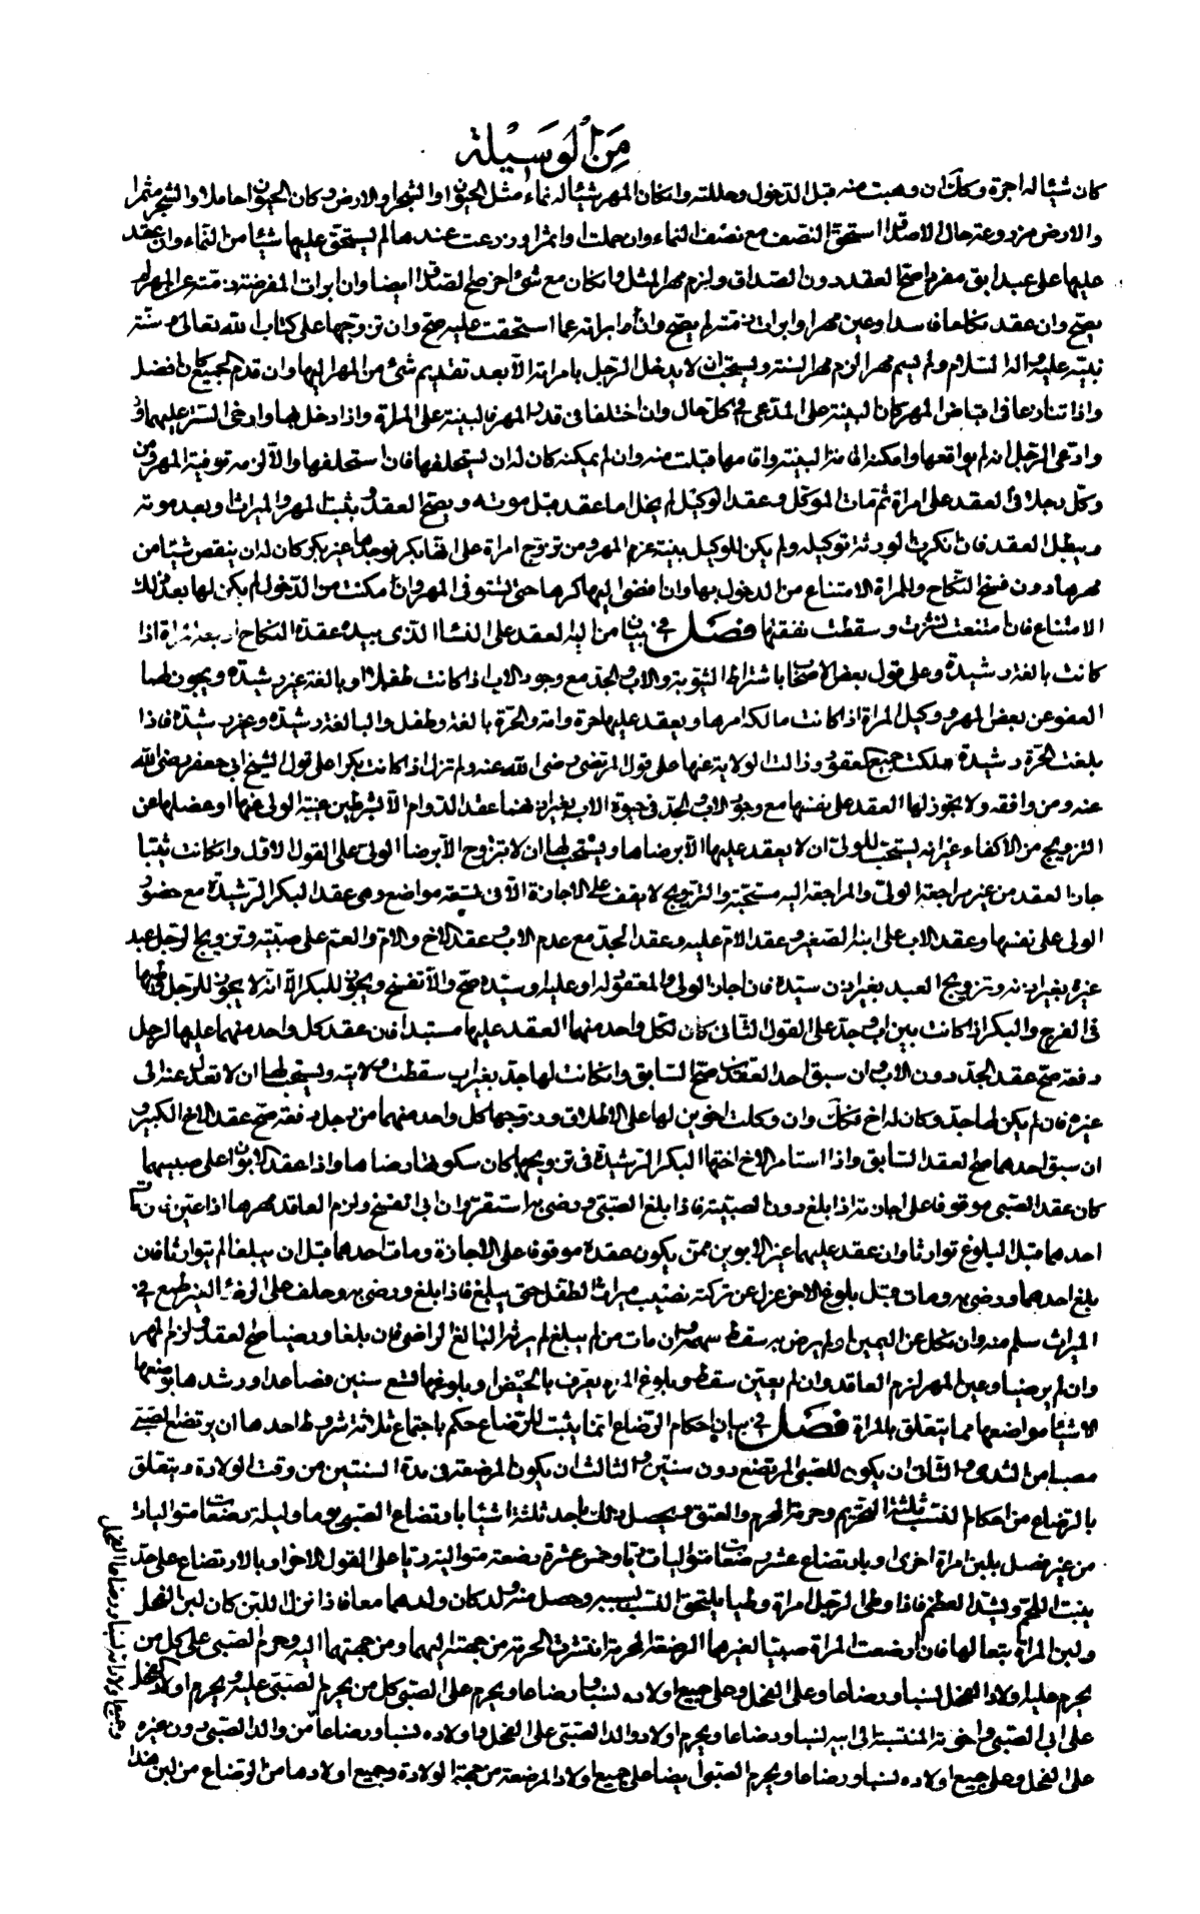 مِنَ الْوَسِيْلة
كان شيئا له اجرة وكك ان وهبت منه قبل الدخول وحللته وان كان المهر شيئا له نماء مثل الحيوان او الشجر او الارض وكان الحيوان حاملا والشجر مثمرا
والارض مزروعة حال الاصداق استحق النصف مع نصف النماء وان حملت او اثمر او زرعت عندها لم يستحق عليها شيئا من النماء وان عقد
عليها على عبد ابق مفردا صح العقد دون الصداق ولزم مهر المثل وان كان مع شئ اخر صح الصداق ايضا وان ابرات المفوضة ذمته عن المهر لم
يصح وان عقد نكاحا فاسدا وعين مهرا وابرات ذمته لم يصح وان ابراته عما استحقت عليه صح وان تزوجها على كتاب الله تعالى وسنة
نبيه عليه واله السلام ولم يسم مهرا لزم مهر السنة ويستحب ان لا يدخل الرجل بامراته الا بعد تقديم شئ من المهر اليها وان قدم الجميع كان افضل
واذا تنازعا في اقباض المهر كان البينة على المدعي في كل حال وان اختلفا في قدر المهر فالبينة على المراة واذا دخل بها وارخى الستر عليهما
وادعى الرجل انه لم يواقعها وامكنه اقامة البينة واقامها قبلت منه وان لم يمكنه كان له ان يستحلفها فان استحلفها والا لزمه توفية المهر ومن
وكل رجلا في العقد على امراة ثم مات الموكل وعقد الوكيل لم يخل اما عقد قبل موته ويصح العقد ويثبت المهر والميراث او بعد موته
ويبطل العقد فان انكرت الورثة توكيله ولم يكن للوكيل بينة غرم المهر ومن تزوج امراة على انها بكر فوجدها غير بكر كان له ان ينقص شيئا من
مهرها دون فسخ النكاح وللمراة الامتناع من الدخول بها وان افضى اليها كرها حتى يستوفى المهر وان مكنت من الدخول لم يكن لها بعد ذلك
الامتناع فان امتنعت نشزت وسقطت نفقتها فصل في بيان من اليه العقد على النساء الذى بيده عقدة النكاح اربعة المراة اذا
كانت بالغة رشيدة وعلى قول بعض الاصحاب باشتراط الثيوبة والاب والجد مع وجود الاب اذا كانت طفلا او بالغة غير رشيدة ويجوز لهما
العفو عن بعض المهر ووكيل المراة اذا كانت مالكة امرها ويعقد عليها حرة وامة والحرة بالغة وطفل والبالغة رشيدة وغير رشيدة فاذا
بلغت الحرة رشيدة ملكت جميع العقود وزالت الولاية عنها على قول المرتضى رضى الله عنه ولم تزل اذا كانت بكرا على قول الشيخ ابى جعفر رضى الله
عنه ومن وافقه ولا يجوز لها العقد على نفسها مع وجود الاب والجد في حيوة الاب بغير اذنهما عقد الدوام الا بشرطين غيبة الولى عنها او عضلها عن
التزويج من الاكفاء غير انه يستحب للولى ان لا يعقد عليها الا برضاها ويستحب لها ان لا تتزوج الا برضا الولى على القول الاول وان كانت ثيبا
جاز العقد من غير مراجعة الولى والمراجعة اليه مستحبة والتزويج لا يقف على الاجازة الا في تسعة مواضع وهى عقد البكر الرشيدة مع حضور
الولى على نفسها وعقد الاب على ابنه الصغير وعقد الام عليه وعقد الجد مع عدم الاب وعقد الاخ والام والعم على صبيته وتزويج الرجل عبد
غيره بغير اذنه وتزويج العبد بغير اذن سيده فان اجاز الولى والمعقود له او عليه او سيده صح والا انفسخ ويجوز للبكر الا انه لا يجوز للرجل
في الفرج والبكر اذا كانت بين اب وجد على القول الثانى كان لكل واحد منهما العقد عليها مستبدا فان عقد كل واحد منهما عليها لرجل
دفعة صح عقد الجد دون الاب وان سبق احد العقدين صح السابق وان كانت لها جد بغير اب سقطت ولايته ويستحب لها ان لا تعدل عنه الى
غيره فان لم يكن لها جد وكان له اخ فكك وان وكلت اخوين لها على الاطلاق وزوجها كل واحد منهما من رجل دفعة صح عقد الاخ الكبير و
ان سبق احدهما صح العقد السابق واذا استامر الاخ اختها البكر الرشيدة في تزويجها كان سكوتها رضاها واذا عقد الابوان على صبييهما
كان عقد الصبى موقوفا على اجازته اذا بلغ دون الصبية فاذا بلغ الصبى ورضى به استقر وان ابى انفسخ ولزم العاقد مهرها اذا عين فان مات
احدهما قبل البلوغ توارثا وان عقد عليهما غير الابوين ممن يكون عقده موقوفا على الاجازة ومات احدهما قبل ان يبلغا لم يتوارثا فان
بلغ احدهما ورضى به ومات قبل بلوغ الاخر عزل عن تركته نصيب ميراث الطفل حتى يبلغ فاذا بلغ ورضى به وحلف على انه غير طمع في
الميراث سلم منه وان نكل عن اليمين او لم يرض به سقط سهمه وان مات من لم يبلغ لم يرثه البالغ الراضى فان بلغا ورضيا صح العقد ولزم المهر
وان لم يرضيا وعين المهر لزم العاقد وان لم يعين سقط وبلوغ المراة يعرف بالحيض او بلوغها تسع سنين فصاعدا ورشدها بوضعها
الاشياء مواضعها مما يتعلق بالمراة فصل في بيان احكام الرضاع انما يثبت للرضاع حكم باجتماع ثلاثة شروط احدها ان يرتضع الصبى
مصبا من الثدى والثانى ان يكون للصبى المرتضع دون سنتين والثالث ان يكون المرضعة في مدة السنتين من وقت الولادة ويتعلق
بالرضاع من احكام النسب ثلثة التحريم وحرمة المحرم والعتق ويحصل ذلك باحد ثلثة اشياء بارتضاع الصبى يوما وليلة رضعات متواليات
من غير فصل بلبن امراة اخرى او بارتضاع عشر رضعات متواليات تاما وخمس عشرة رضعة متوالية رويا على القول الاخر او بالارتضاع على حد
ينبت اللحم ويشد العظم فاذا وطى الرجل امراة وطيا يلتحق النسب بسببه وحصل منه ولد كان ولدهما معا فاذا نزل اللبن كان لبن الفحل
ولبن المراة تبعا لها فان ارضعت المراة صبيا لغيرهما الرضعة المحرمة انتشرت الحرمة من جهته اليهما ومن جهتهما اليه وحرم الصبى على كل من
يحرم عليه اولاد الفحل نسبا ورضاعا وعلى الفحل وعلى جميع اولاده نسبا ورضاعا ويحرم على الصبى كل من يحرم الصبى عليه ويحرم اولاد الفحل
على ابى الصبى واخوته المنتسبة الى ابيه نسبا ورضاعا ويحرم اولاد والد الصبى على الفحل واولاده نسبا ورضاعا من والد الصبى دون غيره
على الفحل وعلى جميع اولاده نسبا ورضاعا ويحرم الصبى ايضا على جميع اولاد المرضعة من جهة الولادة وجميع اولادها من الرضاع من لبن هذا
وجميع اولاده نسبا ورضاعا الفحل